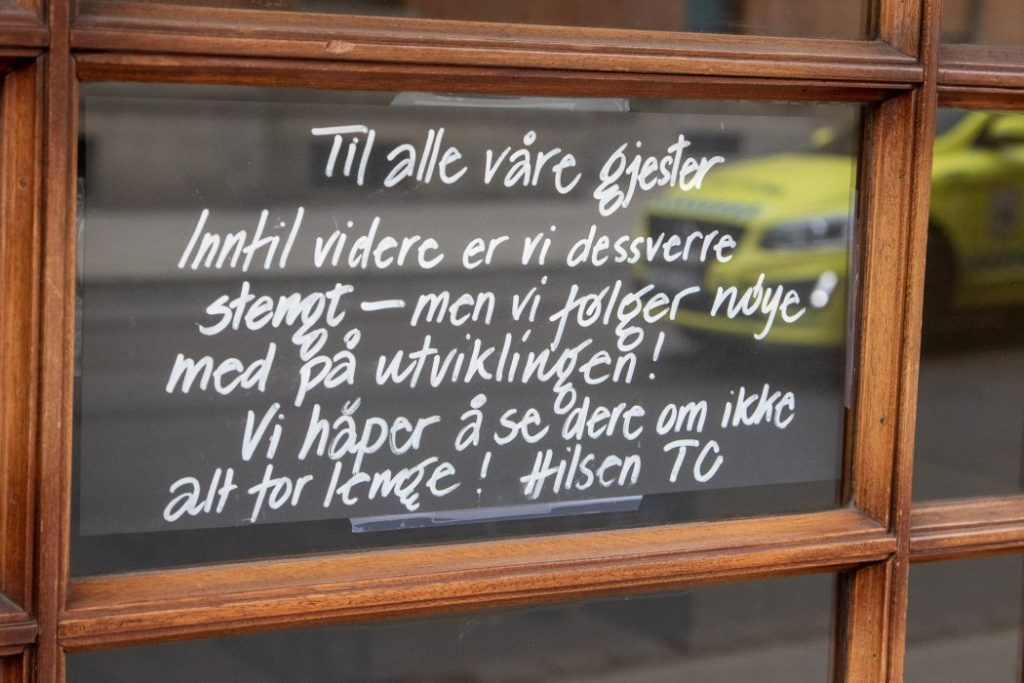 Til alle våre gjester
Inntil videre er vi dessverre
stengt – men vi følger nøye
med på utviklingen!
Vi håper å se dere om ikke
alt for lenge! Hilsen TC